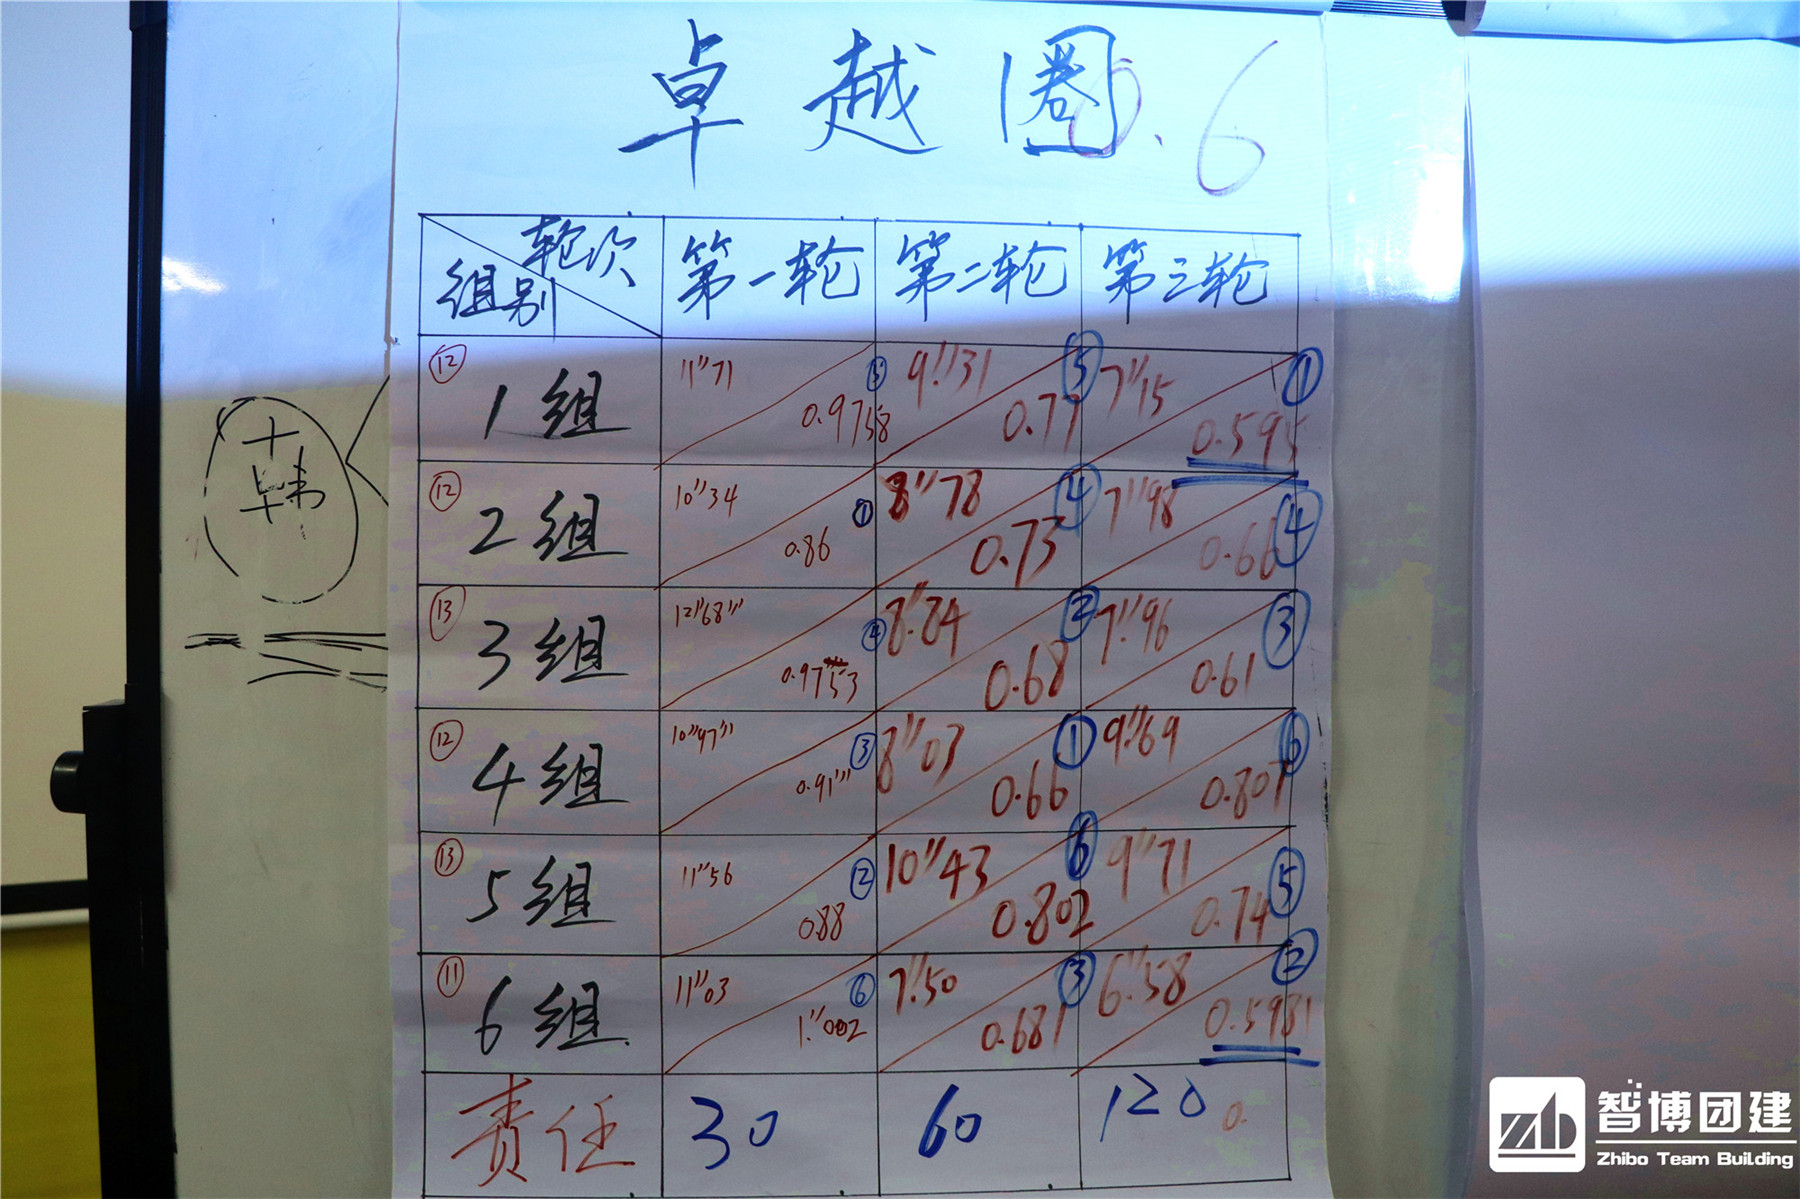 卓越圈 0.6
轮次 第一轮 第二轮 第三轮
组别
⑫ 1组 11"71 ⑤ 0.9758 9"31 ⑤ 0.77 7"15 ① 0.595
⑫ 2组 10"34 ① 0.86 8"78 ④ 0.73 7"98 ④ 0.66
⑬ 3组 12"68''' ④ 0.9753 8"84 ② 0.68 7"96 ③ 0.61
⑫ 4组 10"97''' ③ 0.91''' 8"03 ① 0.66 9"69 ⑥ 0.807
⑬ 5组 11"56 ② 0.88 10"43 ⑥ 0.802 9"71 ⑤ 0.74
⑪ 6组 11"03 ⑥ 1."002 7"50 ③ 0.681 6"58 ② 0.5981
责任 30 60 120 0.
十
韩
智博团建
Zhibo Team Building